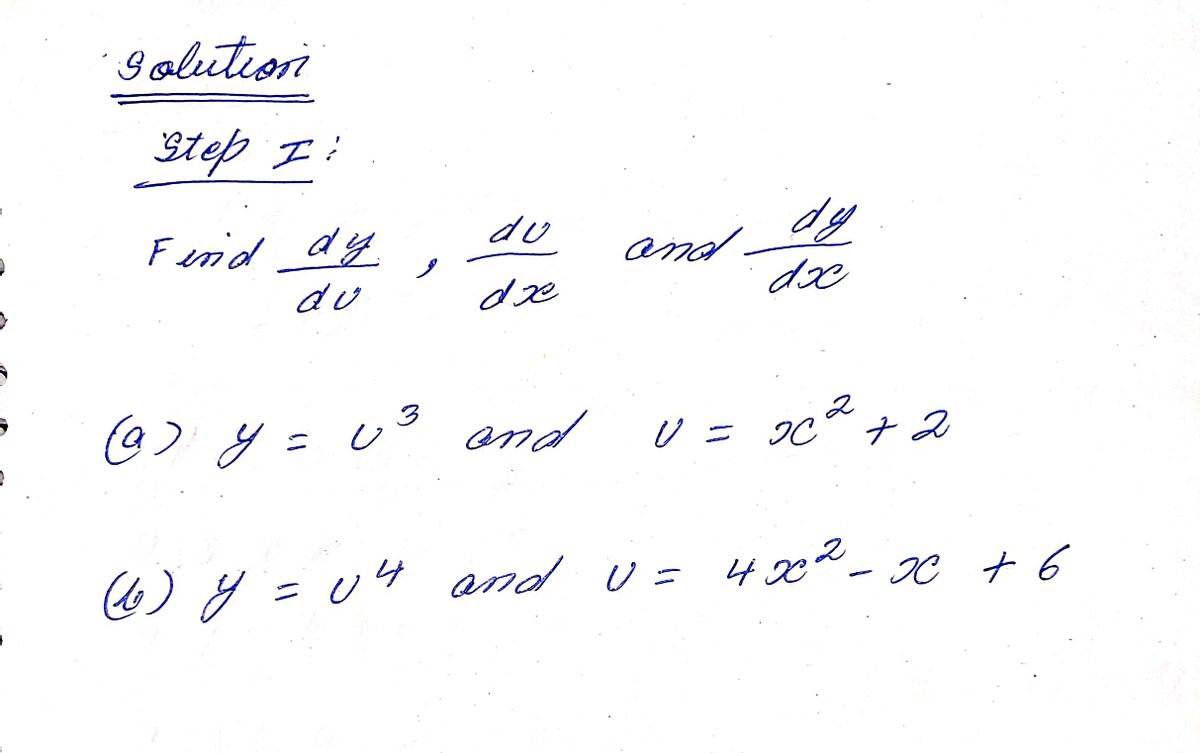 Solution
Step I:
Find dy/du, du/dx and dy/dx
(a) y = u³ and u = x² + 2
(b) y = u⁴ and u = 4x² - x + 6